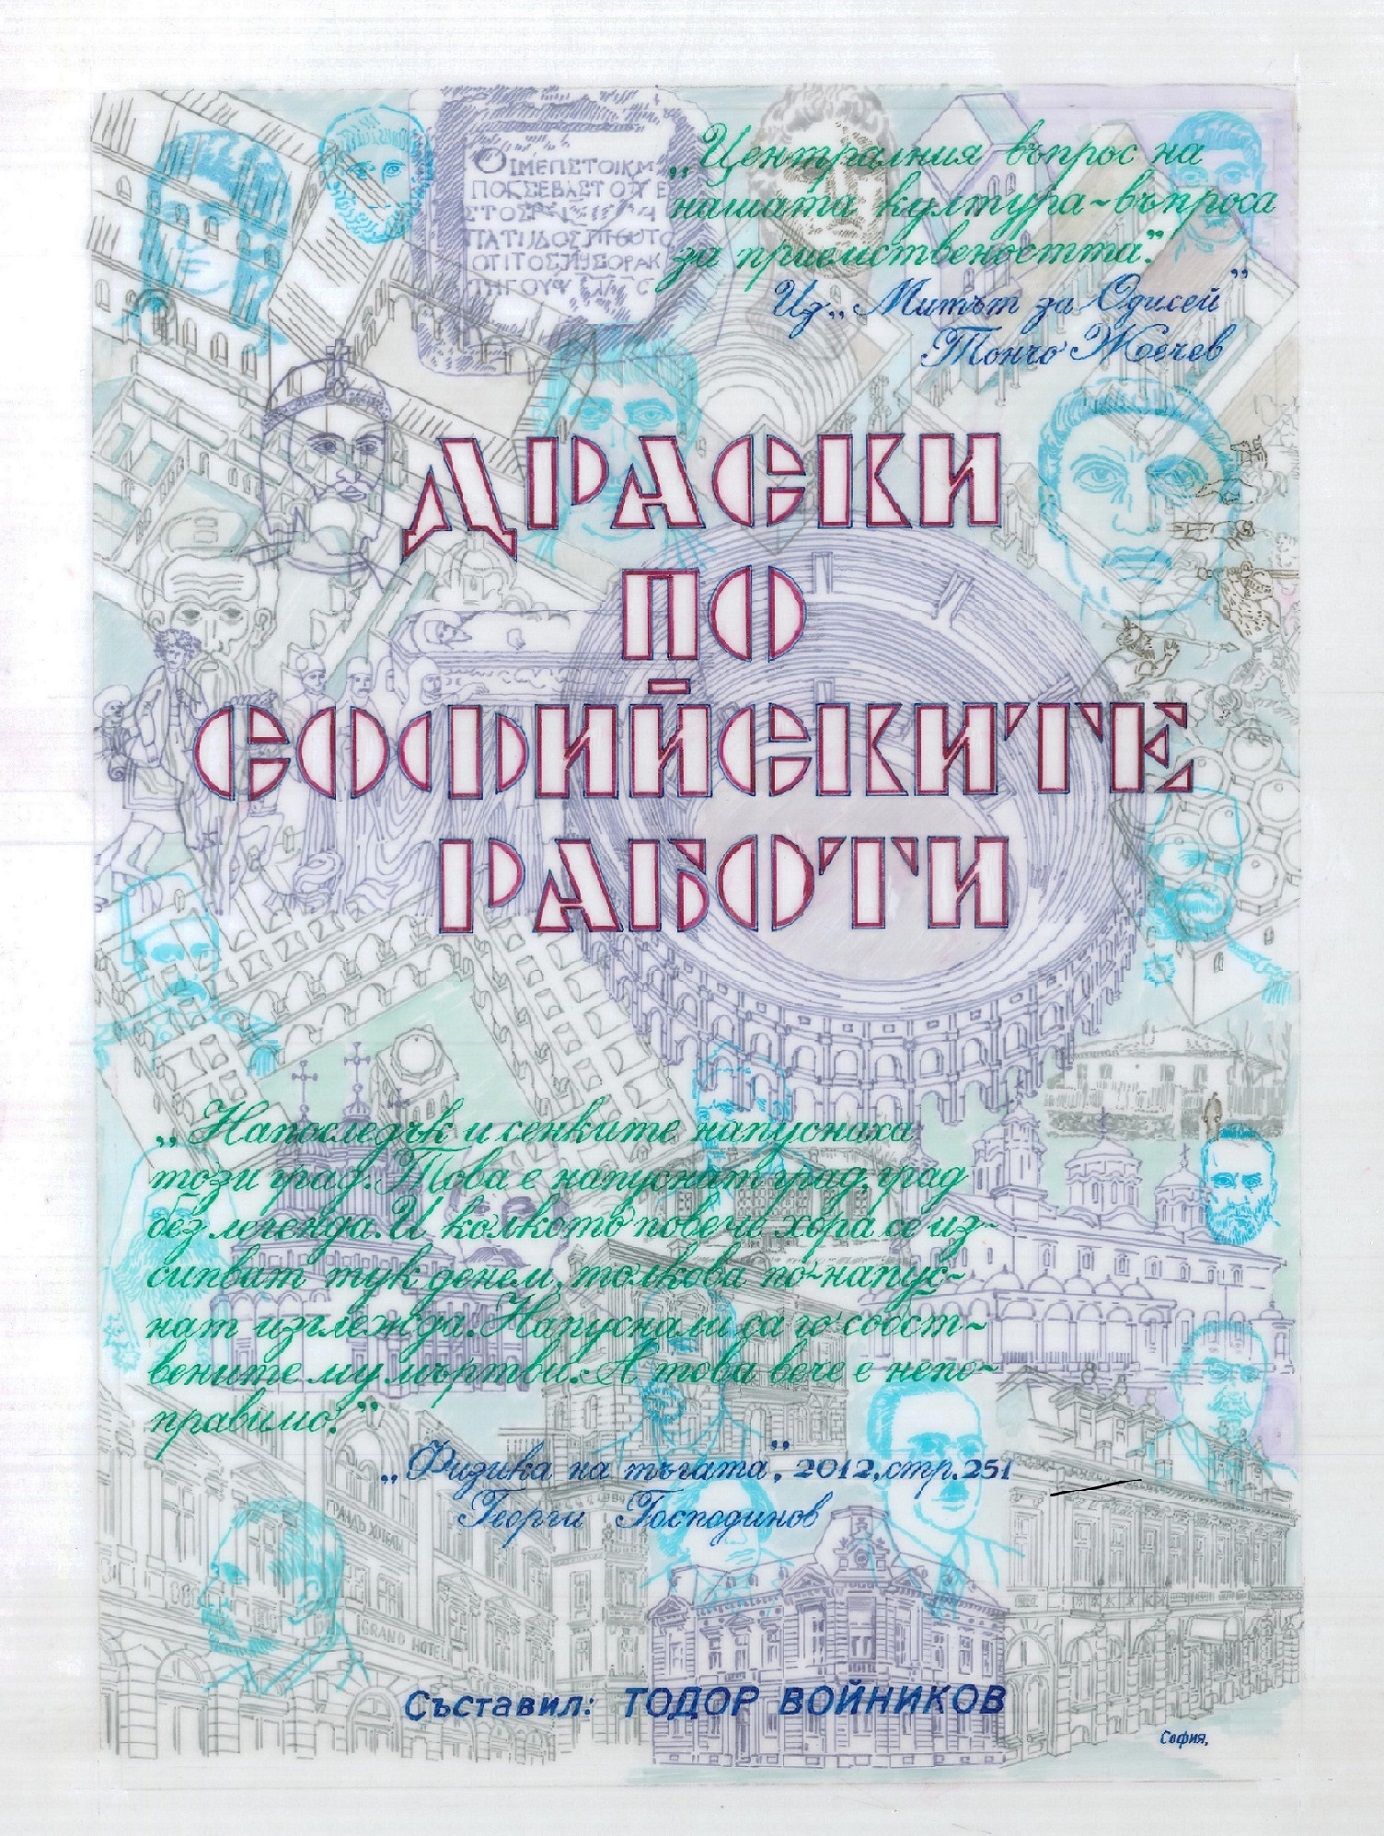 ΟΙΜΕΠΣΤΟΙΚΜ
„Централния въпрос на
нашата култура~въпроса
за приемствеността.”
Из „Митът за Одисей”
Тончо Жечев
ДРАСКИ
ПО
СОФИЙСКИТЕ
РАБОТИ
„Напоследък и сенките напуснаха
този град. Това е напуснат град, град
без легенда. И колкото повече хора се из~
сипват тук денем, толкова по~напус~
нат изглежда. Напуснали са го собст~
вените му мъртви. А това вече е непо~
правимо.”
„Физика на тъгата”, 2012, стр. 251
Георги Господинов
GRAND HOTEL
Съставил: ТОДОР ВОЙНИКОВ
София,